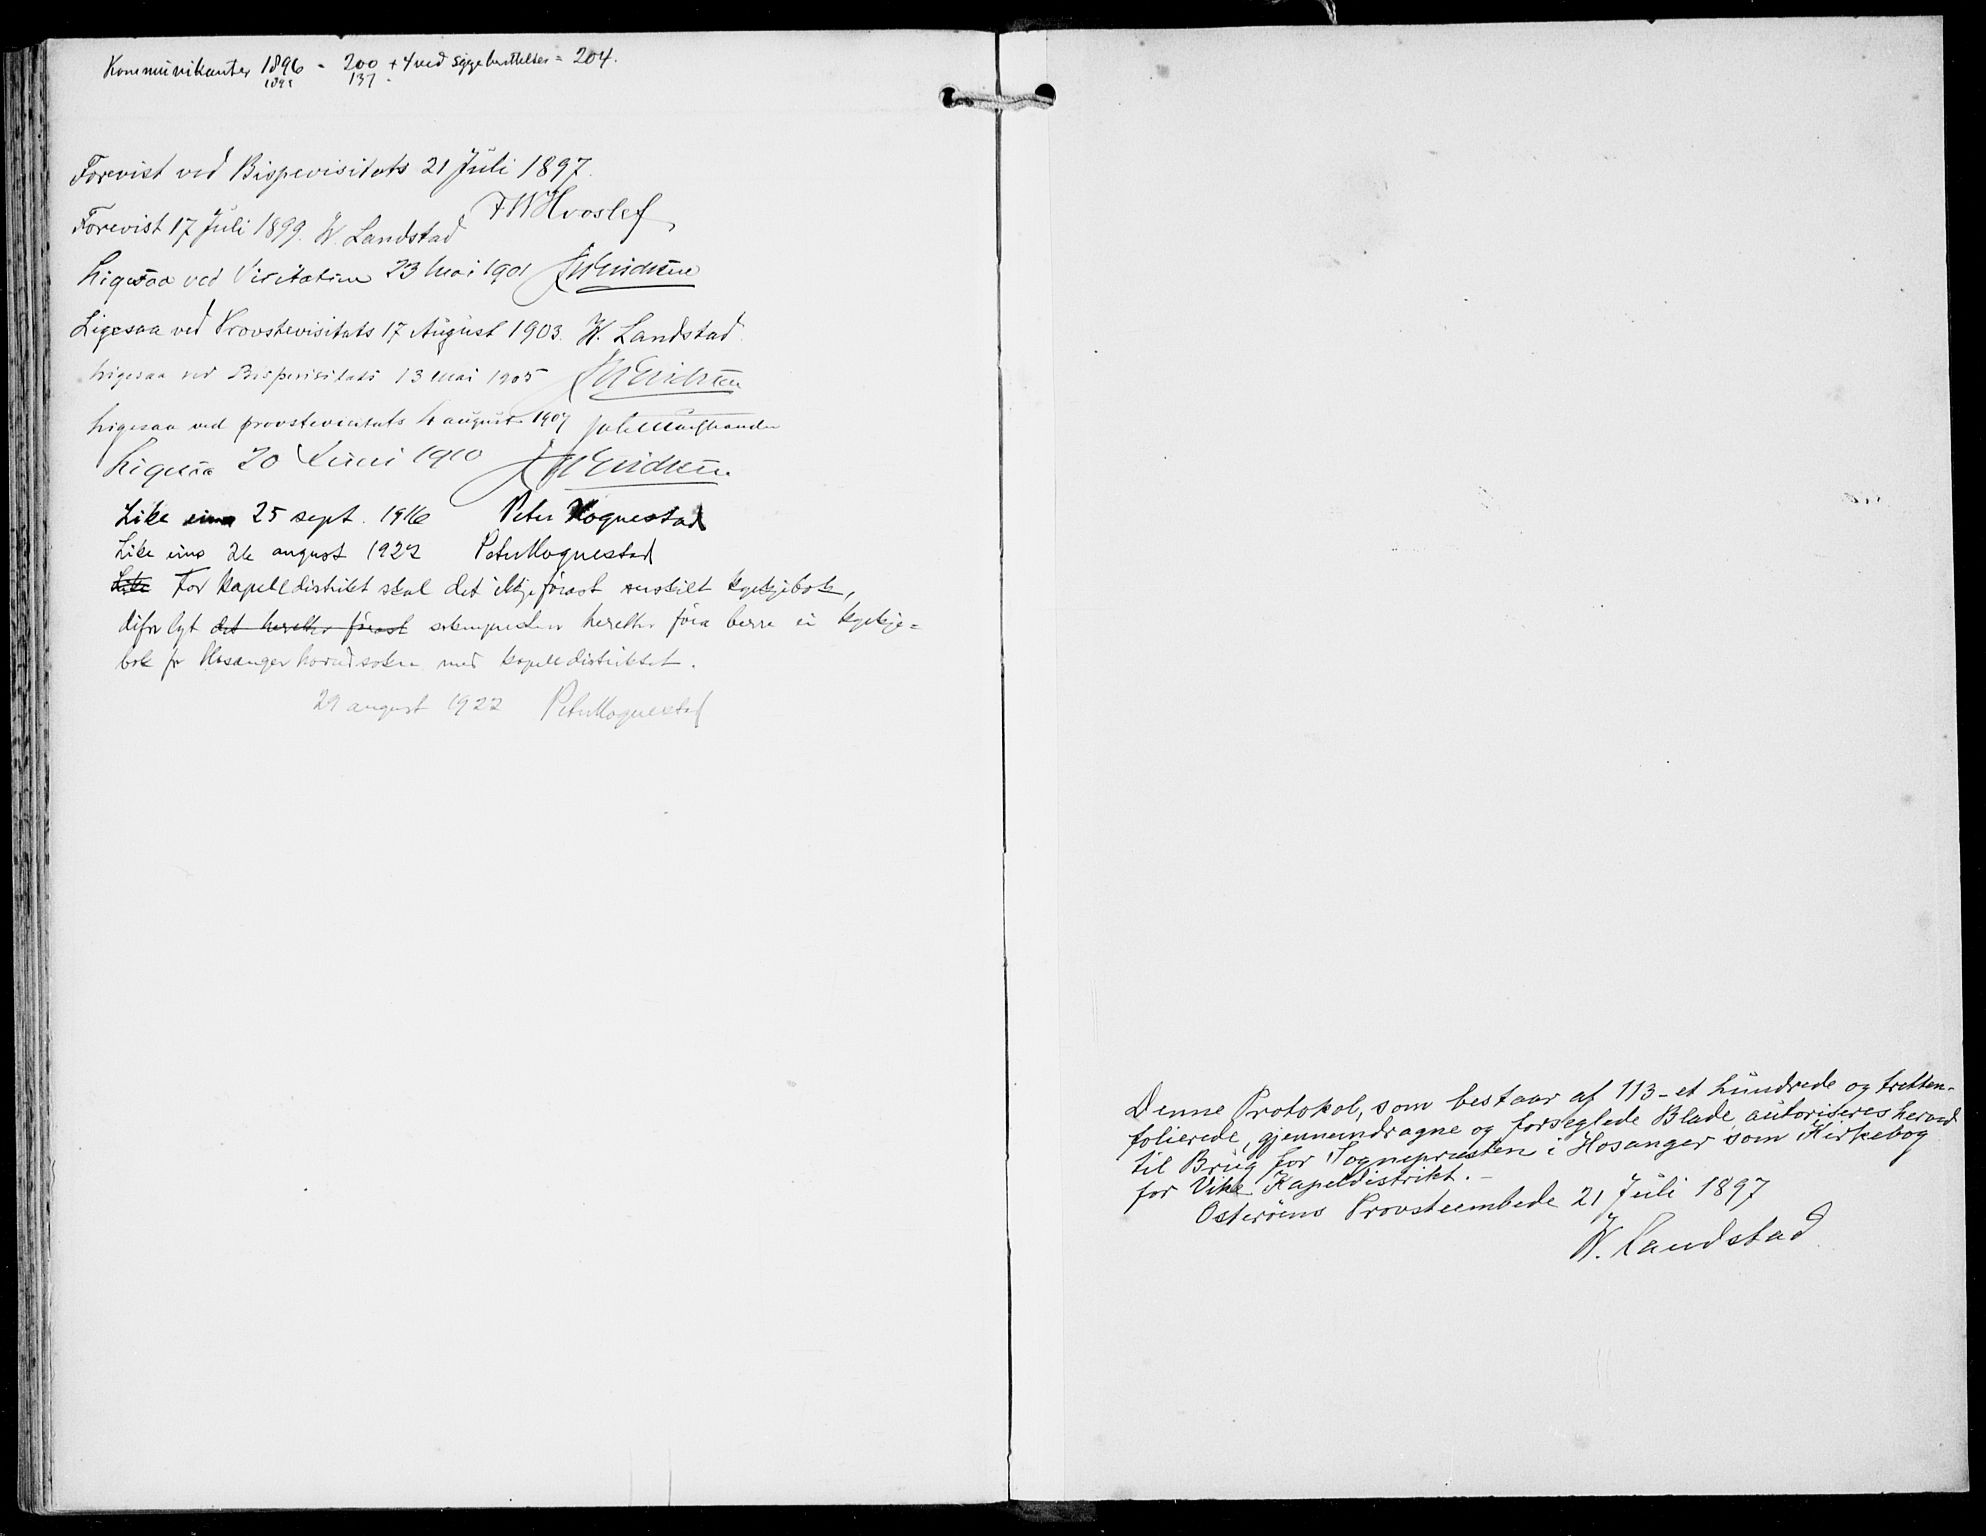 Kommunikanter 1896 - 200 + 4 ved Sygeberettelser = 204.
1895 137.
Forevist ved Bispevisitats 21 Juli 1897.
F W Hvoslef
Forevist 17 Juli 1899. W. Landstad
Ligesaa ved Visitation 23 Mai 1901 J W Erichsen
Ligesaa ved Provstevisitats 17 August 1903. W. Landstad.
Ligesaa ved Bispevisitats 13 mai 1905 J W Erichsen
Ligesaa ved provstevisitats august 1907
Ligesaa 20 Juni 1910 J W Erichsen
Like eins 25 sept. 1916 Peter Hognestad
Like eins 26 august 1922 Peter Hognestad
Like For kapelldistrikt skal det ikkje førast serskilt kyrkjebok,
difor lyt det heretter førast soknepresten heretter føra berre ei kyrkje=
bok for Hosanger hovudsokn med kapelldistriktet.
29 august 1922 Peter Hognestad
Denne Protokol, som bestaar af 113 - et hundrede og tretten -
folierede, gjennemdragne og forseglede Blade, autoriseres herved
til Brug for Sognepresten i Hosanger som Kirkebog
for Vike Kapeldistrikt. -
Osterøens Provsteembede 21 Juli 1897
W. Landstad